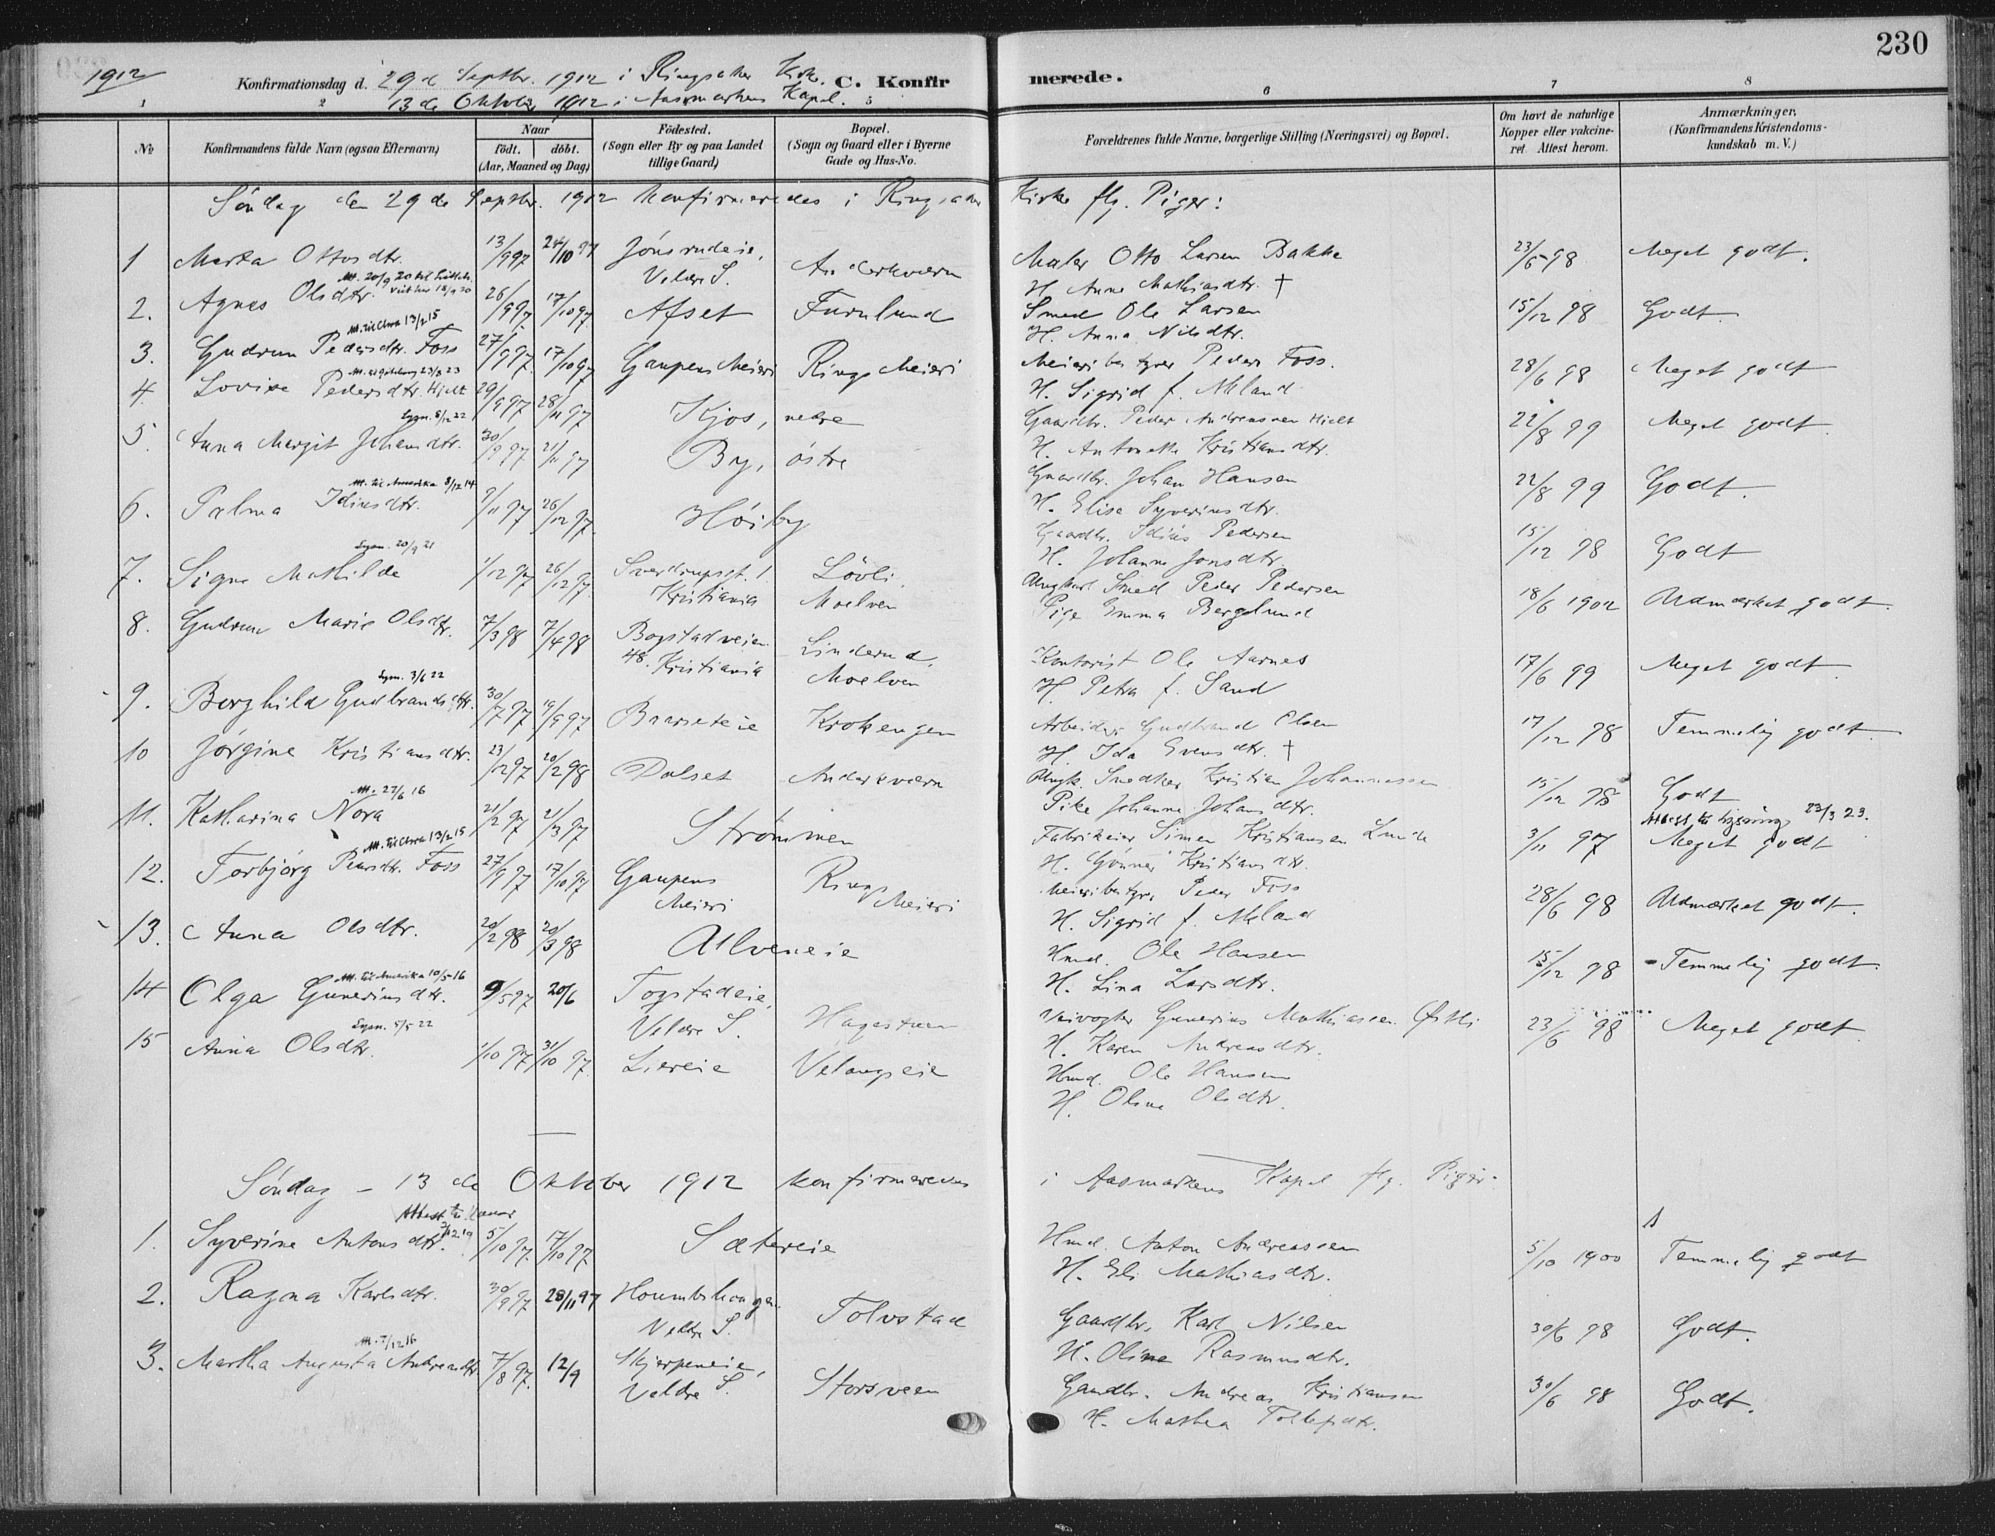 230
1912
Konfirmationsdag d. 29de Septbr. 1912 i Ringsaker Krk. C. Konfirmerede.
13de Oktober 1912 i Aasmarkens Kapel.
1 2 5 6 7 8
No Konfirmandens fulde Navn (ogsaa Efternavn) Naar født. døbt. (Aar, Maaned og Dag) Fødested. (Sogn eller By og paa Landet tillige Gaard) Bopæl. (Sogn og Gaard eller i Byerne Gade og Hus-No. Forældrenes fulde Navne, borgerlige Stilling (Næringsvei) og Bopæl. Om havt de naturlige Kopper eller vakcineret Attest herom. Anmærkninger, (Konfirmandens Kristendomskundskab m. V.)
Søndag den 29de Septbr. 1912 konfirmeredes i Ringsaker Kirke flg. Piger:
1 Marta Ottosdtr. 13/9 97 24/10 97 Jønsrudeie, Veldre S. Anderkværn Maler Otto Larsen Bakke 23/6 98 Meget godt.
H. Anne Mathiasdtr. †
2. Agnes Olsdtr. 26/9 97. 17/10 97 Afset Furulund Smed Ole Larsen 15/12 98 Godt.
H. Anna Nilsdtr.
M. til Chra 13/2 15
3. Gudrun Pedersdtr. Foss 27/9 97. 17/10 97 Gaupens Meieri Rings Meieri Meieribestyrer Peder Foss. 28/6 98 Meget godt
H. Sigrid f. Mæland
4. Lovise Pedersdtr. Hjelt 29/9 97 28/11 97 Kjos, nedre Gaardbr. Peder Andreassen Hjelt 22/8 99 Meget godt.
H. Antonette Kristiansdtr.
Lysn. 8/12 22
5. Anna Margit Johansdtr. 30/9 97 21/11 97 By, østre Gaardbr. Johan Hansen 22/8 99 Godt.
H. Elise Syverinsdtr.
M. til Amerika 8/12 14
6. Palma Idiusdtr. 9/11 97 26/12 97. Høiby Gaardbr. Idius Pedersen 15/12 98 Godt
H. Johanne Jonsdtr.
Lysn. 20/9 21
7. Signe Mathilde 1/12 97 26/12 97. Sverdrupsgt. 1. Kristiania Løvli, Moelven Ungkarl Smed Peder Pedersen 18/6 1902 Udmærket godt.
Pige Emma Berglund
8. Gudrun Marie Olsdtr. 7/3 98 7/4 98 Bogstadveien 48. Kristiania Linderud, Moelven Kontorist Ole Aarnes 17/6 99 Meget godt.
H. Petra f. Sand
Lysn. 3/6 22
9. Borghild Gudbrandsdtr. 30/7 97 19/9 97 Baarseteie Krokengen Arbeider Gudbrand Olsen 17/12 98 Temmelig godt.
H. Ida Evensdtr. †
10 Jørgine Kristiansdtr. 23/12 97 20/2 98 Dalset Anderkværn Ungk. Snedker Kristian Johannessen 15/12 98 Godt
Pike Johanne Johansdtr.
M. 22/6 16
11. Katharina Nora 21/2 97 21/3 97 Strømmen Fabrikeier Simen Kristiansen Lunde 3/11 97 Meget godt
Attest til lysning 23/3 23.
H. Gunner Kristiansdtr.
M. til Chra 13/2 15
12. Torbjørg Pedersdtr. Foss 27/9 97 17/10 97 Gaupens Meieri Rings Meieri Meieribestyr. Peder Foss 28/6 98 Udmærket godt.
H. Sigrid f. Mæland
13. Anna Olsdtr. 20/2 98 20/3 98 Alveneie Hmd. Ole Hansen 15/12 98 Temmelig godt.
H. Lina Larsdtr.
M. til Amerika 10/5 16
14 Olga Guneriusdtr. 9/5 97 20/6 Togstadeie, Veldre S. Hagastuen Veivogter Gunerius Mathiassen Østli 23/6 98 Meget godt.
H. Karen Andreasdtr.
Lysn. 5/5 22
15 Anna Olsdtr. 1/10 97 31/10 97. Liereie Velangseie Hmd. Ole Hansen
H. Oline Olsdtr.
Søndag – 13de Oktober 1912 konfirmeredes i Aasmarkens Kapel flg. Piger:
1. Syverine Antonsdtr. 5/10 97. 17/10 97. Sætereie Hmd. Anton Andreassen 5/10 1900 Temmelig godt
H. Eli Mathiasdtr.
2. Ragna Karlsdtr. 30/9 97 28/11 97 Veldre S. Tolvstad Gaardbr. Karl Nilsen 30/6 98 Godt.
H. Oline Rasmusdtr.
M. 7/12 16
3. Martha Augusta Andreasdtr. 7/8 97. 12/9 Skjerpeneie, Veldre S. Storsveen Gaardbr. Andreas Kristiansen 30/6 98 Godt.
H. Mathea Tollefsdtr.